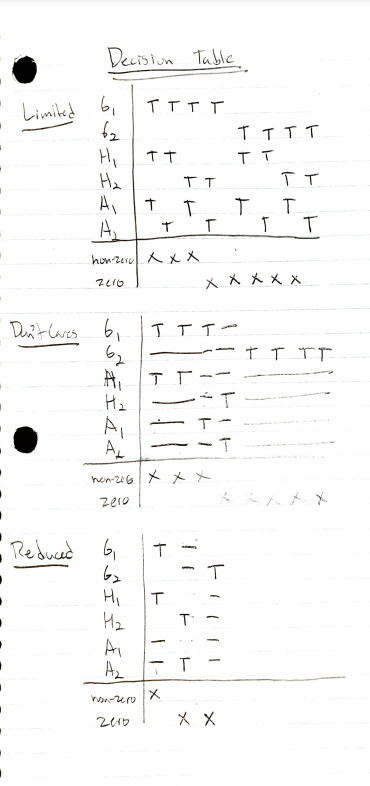 Decision Table
Limited
G₁ T T T T
G₂ T T T T
H₁ T T T T
H₂ T T T T
A₁ T T T T
A₂ T T T T
non-zero X X X
zero X X X X X
Don't Cares
G₁ T T T –
G₂ — – – T T T T
H₁ T T – –
H₂ — – T
A₁ — T –
A₂ — – T
non-zero X X X
zero X X X X X
Reduced
G₁ T –
G₂ – T
H₁ T –
H₂ T –
A₁ – – –
A₂ – T –
non-zero X
zero X X